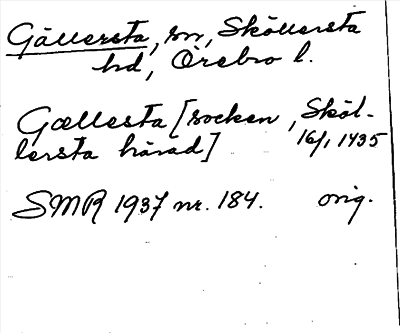 Gällersta, sn, Sköllersta
hd, Örebro l.
Gællesta [socken, Sköl-
lersta härad] 16/1 1435
SMR 1937 nr. 184. orig.